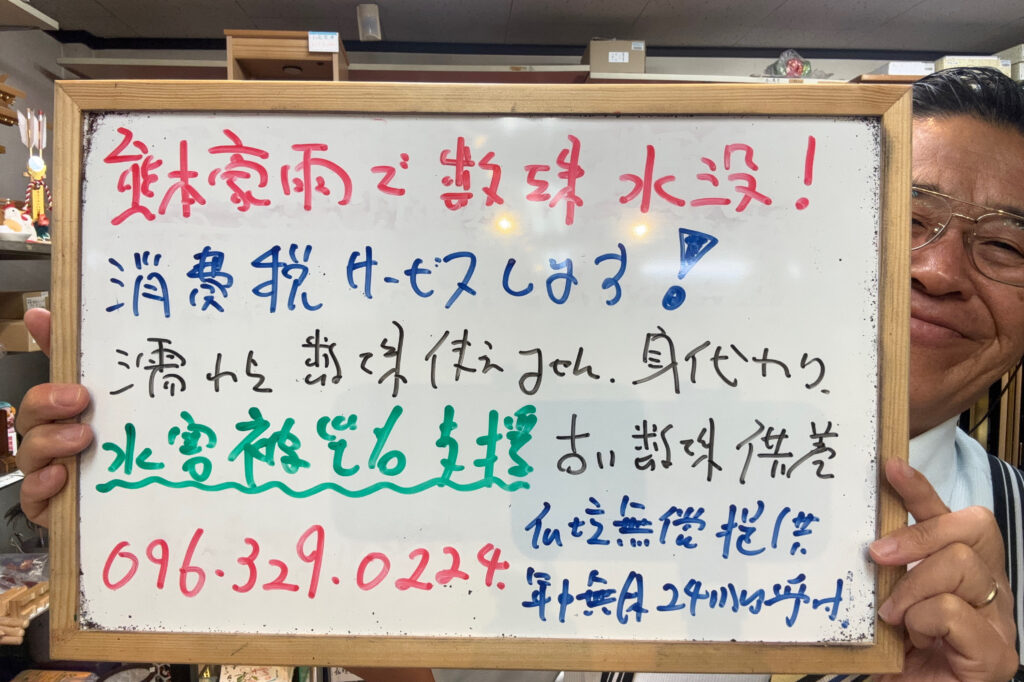 熊本豪雨で数珠水没！
消費税サービスします！
濡れた数珠使えません。身代わり。
水害被災者支援 古い数珠供養
仏壇無償提供
096.329.0224.
年中無休24H受付